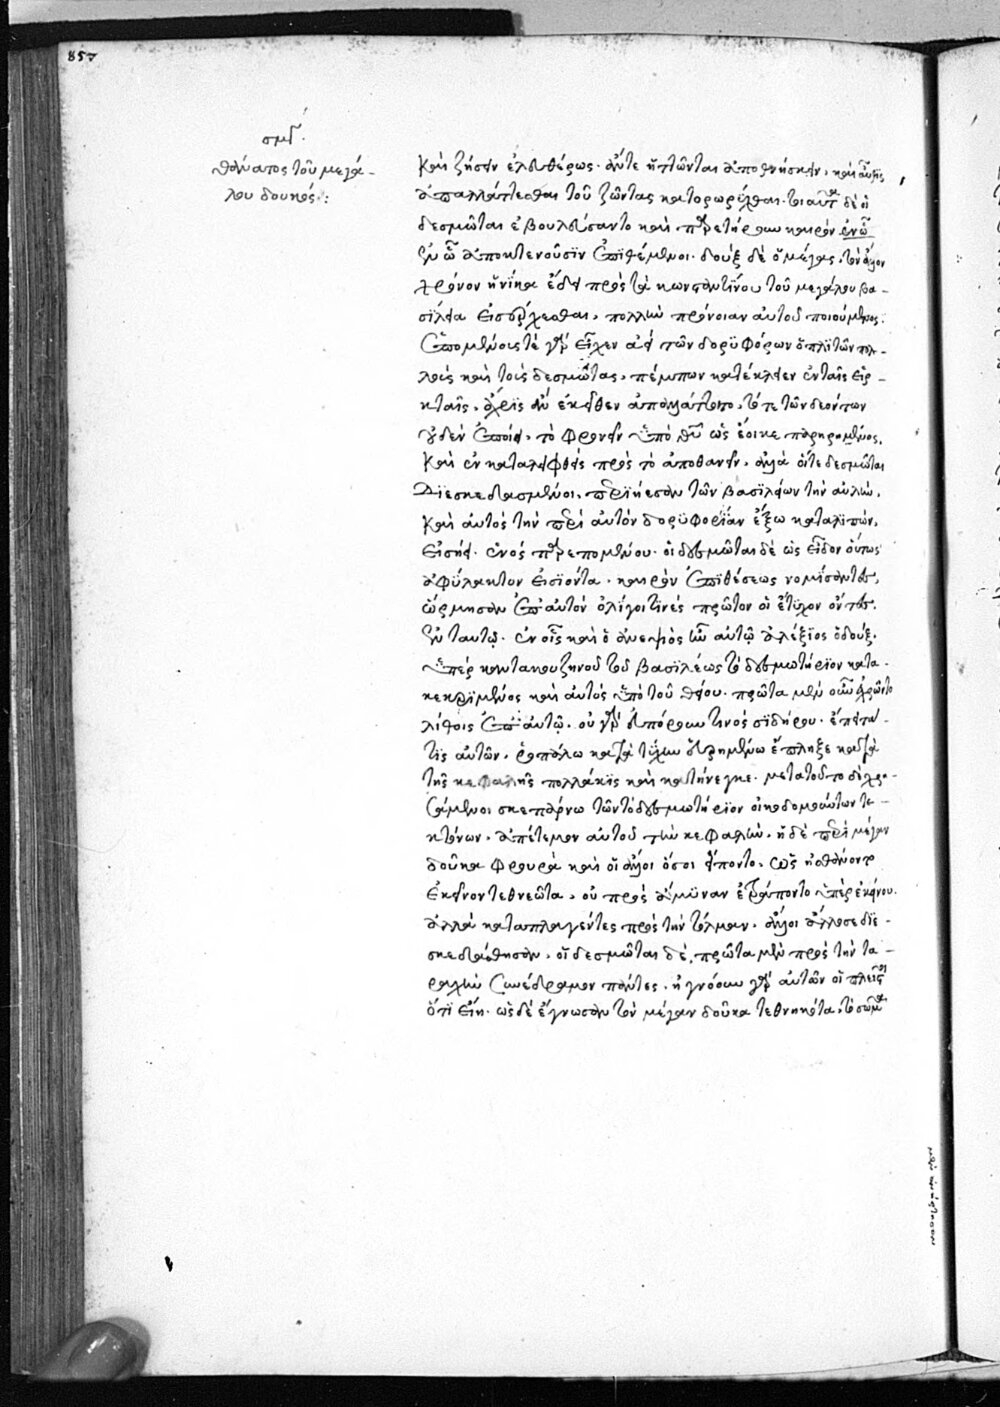 857
σμδ.
θάνατος τοῦ μεγά-
λου δουκός:
καὶ ζῆσαι ἐλευθέρως. ἄν τε ἡττῶνται ἀποθνήσκειν, καὶ
ἀπαλλάττεσθαι τοῦ ζῶντας κατορωρύχθαι. τοιαῦτα δὲ οἱ
δεσμῶται ἐβουλεύσαντο καὶ παρετήρουν καιρὸν ἐν ᾧ
ἀποκτενοῦσιν ἐπιθέμενοι. δοὺξ δὲ ὁ μέγας, τὸν ἄλλον
χρόνον ἡνίκα ἔδει πρὸς τὰ κωνσταντίνου τοῦ μεγάλου βα-
σίλεια εἰσέρχεσθαι, πολλὴν πρόνοιαν αὐτοῦ ποιούμενος.
ἑπομένους τὲ γὰρ εἶχεν ἀεὶ τῶν δορυφόρων ὁπλιτῶν πολ-
λοὺς καὶ τοὺς δεσμώτας, πέμπων κατέκλειεν ἐν ταῖς εἱρ-
κταῖς, ἄχρις ἂν ἐκεῖθεν ἀπαλλάττοιτο, τότε τῶν δεόντων
οὐδὲν ἐποίει, τὸ φρονεῖν ὑπὸ θεοῦ ὡς ἔοικε παρῃρημένος,
καὶ ἐγκαταλειφθεὶς πρὸς τὸ ἀποθανεῖν. ἀλλὰ οἵ τε δεσμῶται
διεσκεδασμένοι, περιῄεσαν τῶν βασιλείων τὴν αὐλήν,
καὶ αὐτὸς τὴν περὶ αὐτὸν δορυφορίαν ἔξω καταλιπών,
εἰσῄει. ἑνὸς παρεπομένου. οἱ δεσμῶται δὲ ὡς εἶδον οὕτως
ἀφύλακτον εἰσιόντα. καιρὸν ἐπιθέσεως νομίσαντες,
ὥρμησαν ἐπ' αὐτὸν ὀλίγοι τινὲς πρῶτον οἳ ἔτυχον ὄντες.
ἐν ταυτῷ. ἐν οἷς καὶ ὁ ἀνεψιὸς ἦν αὐτῷ ἀλέξιος ὁ δούξ.
ὑπὲρ καντακουζηνοῦ τοῦ βασιλέως τὸ δεσμωτήριον κατα-
κεκριμένος καὶ αὐτὸς ὑπὸ τοῦ θείου. πρῶτα μὲν οὖν ἐχρῶντο
λίθοις ἐπ' αὐτῷ. οὐ γὰρ εὐπόρουν τινὸς σιδήρου. ἔπειτα
τις αὐτῶν, ῥοπάλῳ κατὰ τύχην εὑρημένῳ ἔπληξε κατὰ
τῆς κεφαλῆς πολλάκις καὶ κατήνεγκε. μετὰ τοῦτο δὲ χρη-
σάμενοι σκεπάρνῳ τῶν τὸ δεσμωτήριον οἰκοδομούντων τε-
κτόνων, ἀπέτεμον αὐτοῦ τὴν κεφαλήν. ἡ δὲ περὶ μέγαν
δοῦκα φρουρὰ καὶ οἱ ἄλλοι ὅσοι εἵποντο, ὡς ᾐσθάνοντο
ἐκεῖνον τεθνεῶτα, οὐ πρὸς ἄμυναν ἐτράποντο ὑπὲρ ἐκείνου.
ἀλλὰ καταπλαγέντες πρὸς τὴν τόλμαν, ἄλλοι ἄλλοσε διε-
σκεδάσθησαν. οἱ δεσμῶται δὲ, πρῶτα μὲν πρὸς τὴν τα-
ραχὴν συνέδραμον πάντες. ἠγνόουν γὰρ αὐτῶν οἱ πλείους
ὅτι εἴη. ὡς δὲ ἔγνωσαν τὸν μέγαν δοῦκα τεθνηκότα, τὸ σῶμα